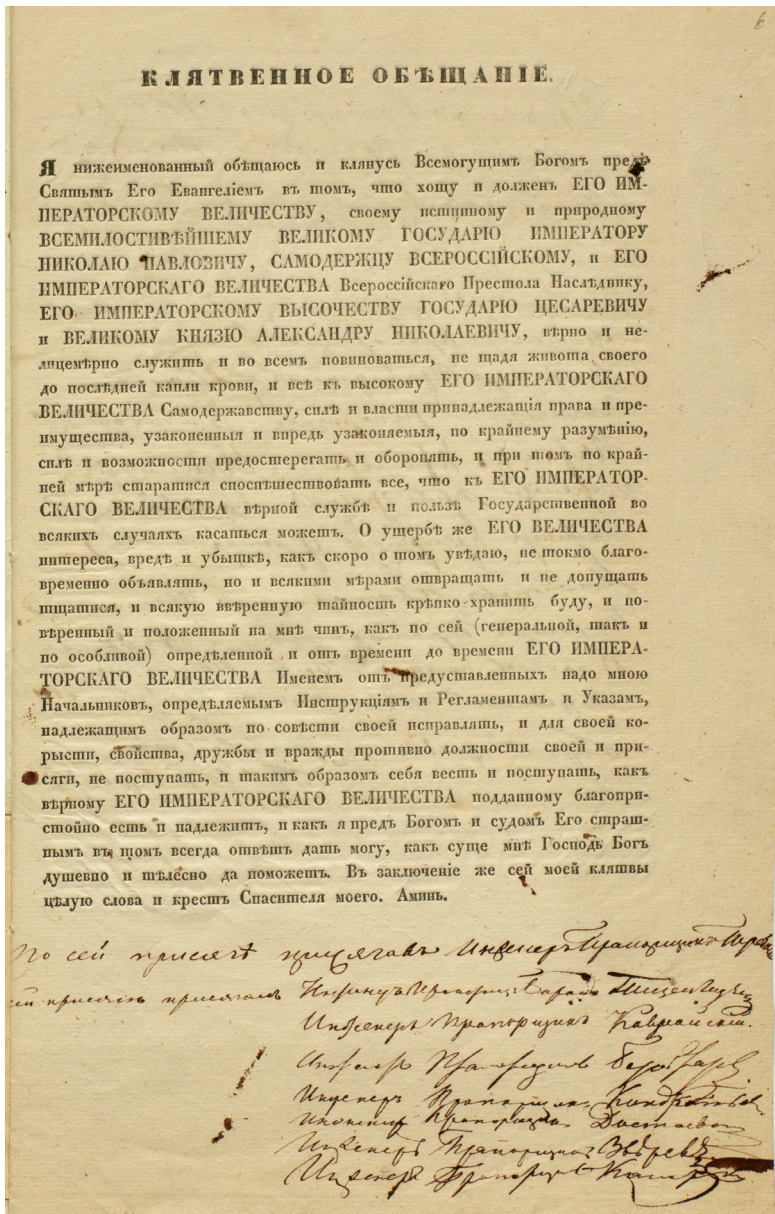 6
КЛЯТВЕННОЕ ОБѢЩАНІЕ.
Я нижеименованный обѣщаюсь и клянусь Всемогущимъ Богомъ предъ
Святымъ Его Евангеліемъ въ томъ, что хощу и долженъ ЕГО ИМ-
ПЕРАТОРСКОМУ ВЕЛИЧЕСТВУ, своему истинному и природному
ВСЕМИЛОСТИВѢЙШЕМУ ВЕЛИКОМУ ГОСУДАРЮ ИМПЕРАТОРУ
НИКОЛАЮ ПАВЛОВИЧУ, САМОДЕРЖЦУ ВСЕРОССІЙСКОМУ, и ЕГО
ИМПЕРАТОРСКАГО ВЕЛИЧЕСТВА Всероссійскаго Престола Наслѣднику,
ЕГО ИМПЕРАТОРСКОМУ ВЫСОЧЕСТВУ ГОСУДАРЮ ЦЕСАРЕВИЧУ
и ВЕЛИКОМУ КНЯЗЮ АЛЕКСАНДРУ НИКОЛАЕВИЧУ, вѣрно и не-
лицемѣрно служить и во всемъ повиноваться, не щадя живота своего
до послѣдней капли крови, и всѣ къ высокому ЕГО ИМПЕРАТОРСКАГО
ВЕЛИЧЕСТВА Самодержавству, силѣ и власти принадлежащія права и пре-
имущества, узаконенныя и впредь узаконяемыя, по крайнему разумѣнію,
силѣ и возможности предостерегать и оборонять, и при томъ по край-
ней мѣрѣ старатися споспѣшествовать все, что къ ЕГО ИМПЕРАТОР-
СКАГО ВЕЛИЧЕСТВА вѣрной службѣ и пользѣ Государственной во
всякихъ случаяхъ касаться можетъ. О ущербѣ же ЕГО ВЕЛИЧЕСТВА
интереса, вредѣ и убыткѣ, какъ скоро о томъ увѣдаю, не токмо благо-
временно объявлять, но и всякими мѣрами отвращать и не допущать
тщатися, и всякую ввѣренную тайность крѣпко хранить буду, и по-
вѣренный и положенный на мнѣ чинъ, какъ по сей (генеральной, такъ и
по особливой) опредѣленной и отъ времени до времени ЕГО ИМПЕРА-
ТОРСКАГО ВЕЛИЧЕСТВА Именемъ отъ предуставленныхъ надо мною
Начальниковъ, опредѣляемымъ Инструкціямъ и Регламентамъ и Указамъ,
надлежащимъ образомъ по совѣсти своей исправлять, и для своей ко-
рысти, свойства, дружбы и вражды противно должности своей и при-
сяги, не поступать, и такимъ образомъ себя весть и поступать, какъ
вѣрному ЕГО ИМПЕРАТОРСКАГО ВЕЛИЧЕСТВА подданному благопри-
стойно есть и надлежитъ, и какъ я предъ Богомъ и судомъ Его страш-
нымъ въ томъ всегда отвѣтъ дать могу, какъ суще мнѣ Господь Богъ
душевно и тѣлесно да поможетъ. Въ заключеніе же сей моей клятвы
цѣлую слова и крестъ Спасителя моего. Аминь.
По сей присягѣ присягалъ Инженеръ Прапорщикъ
сей присягѣ присягалъ Инженеръ Прапорщ: Баронъ
Инженеръ Прапорщикъ
Инженеръ Прапорщикъ
Инженеръ Прапорщикъ
Инженеръ Прапорщикъ Достоевской
Инженеръ Прапорщикъ Звѣревъ
Инженеръ Прапорщикъ